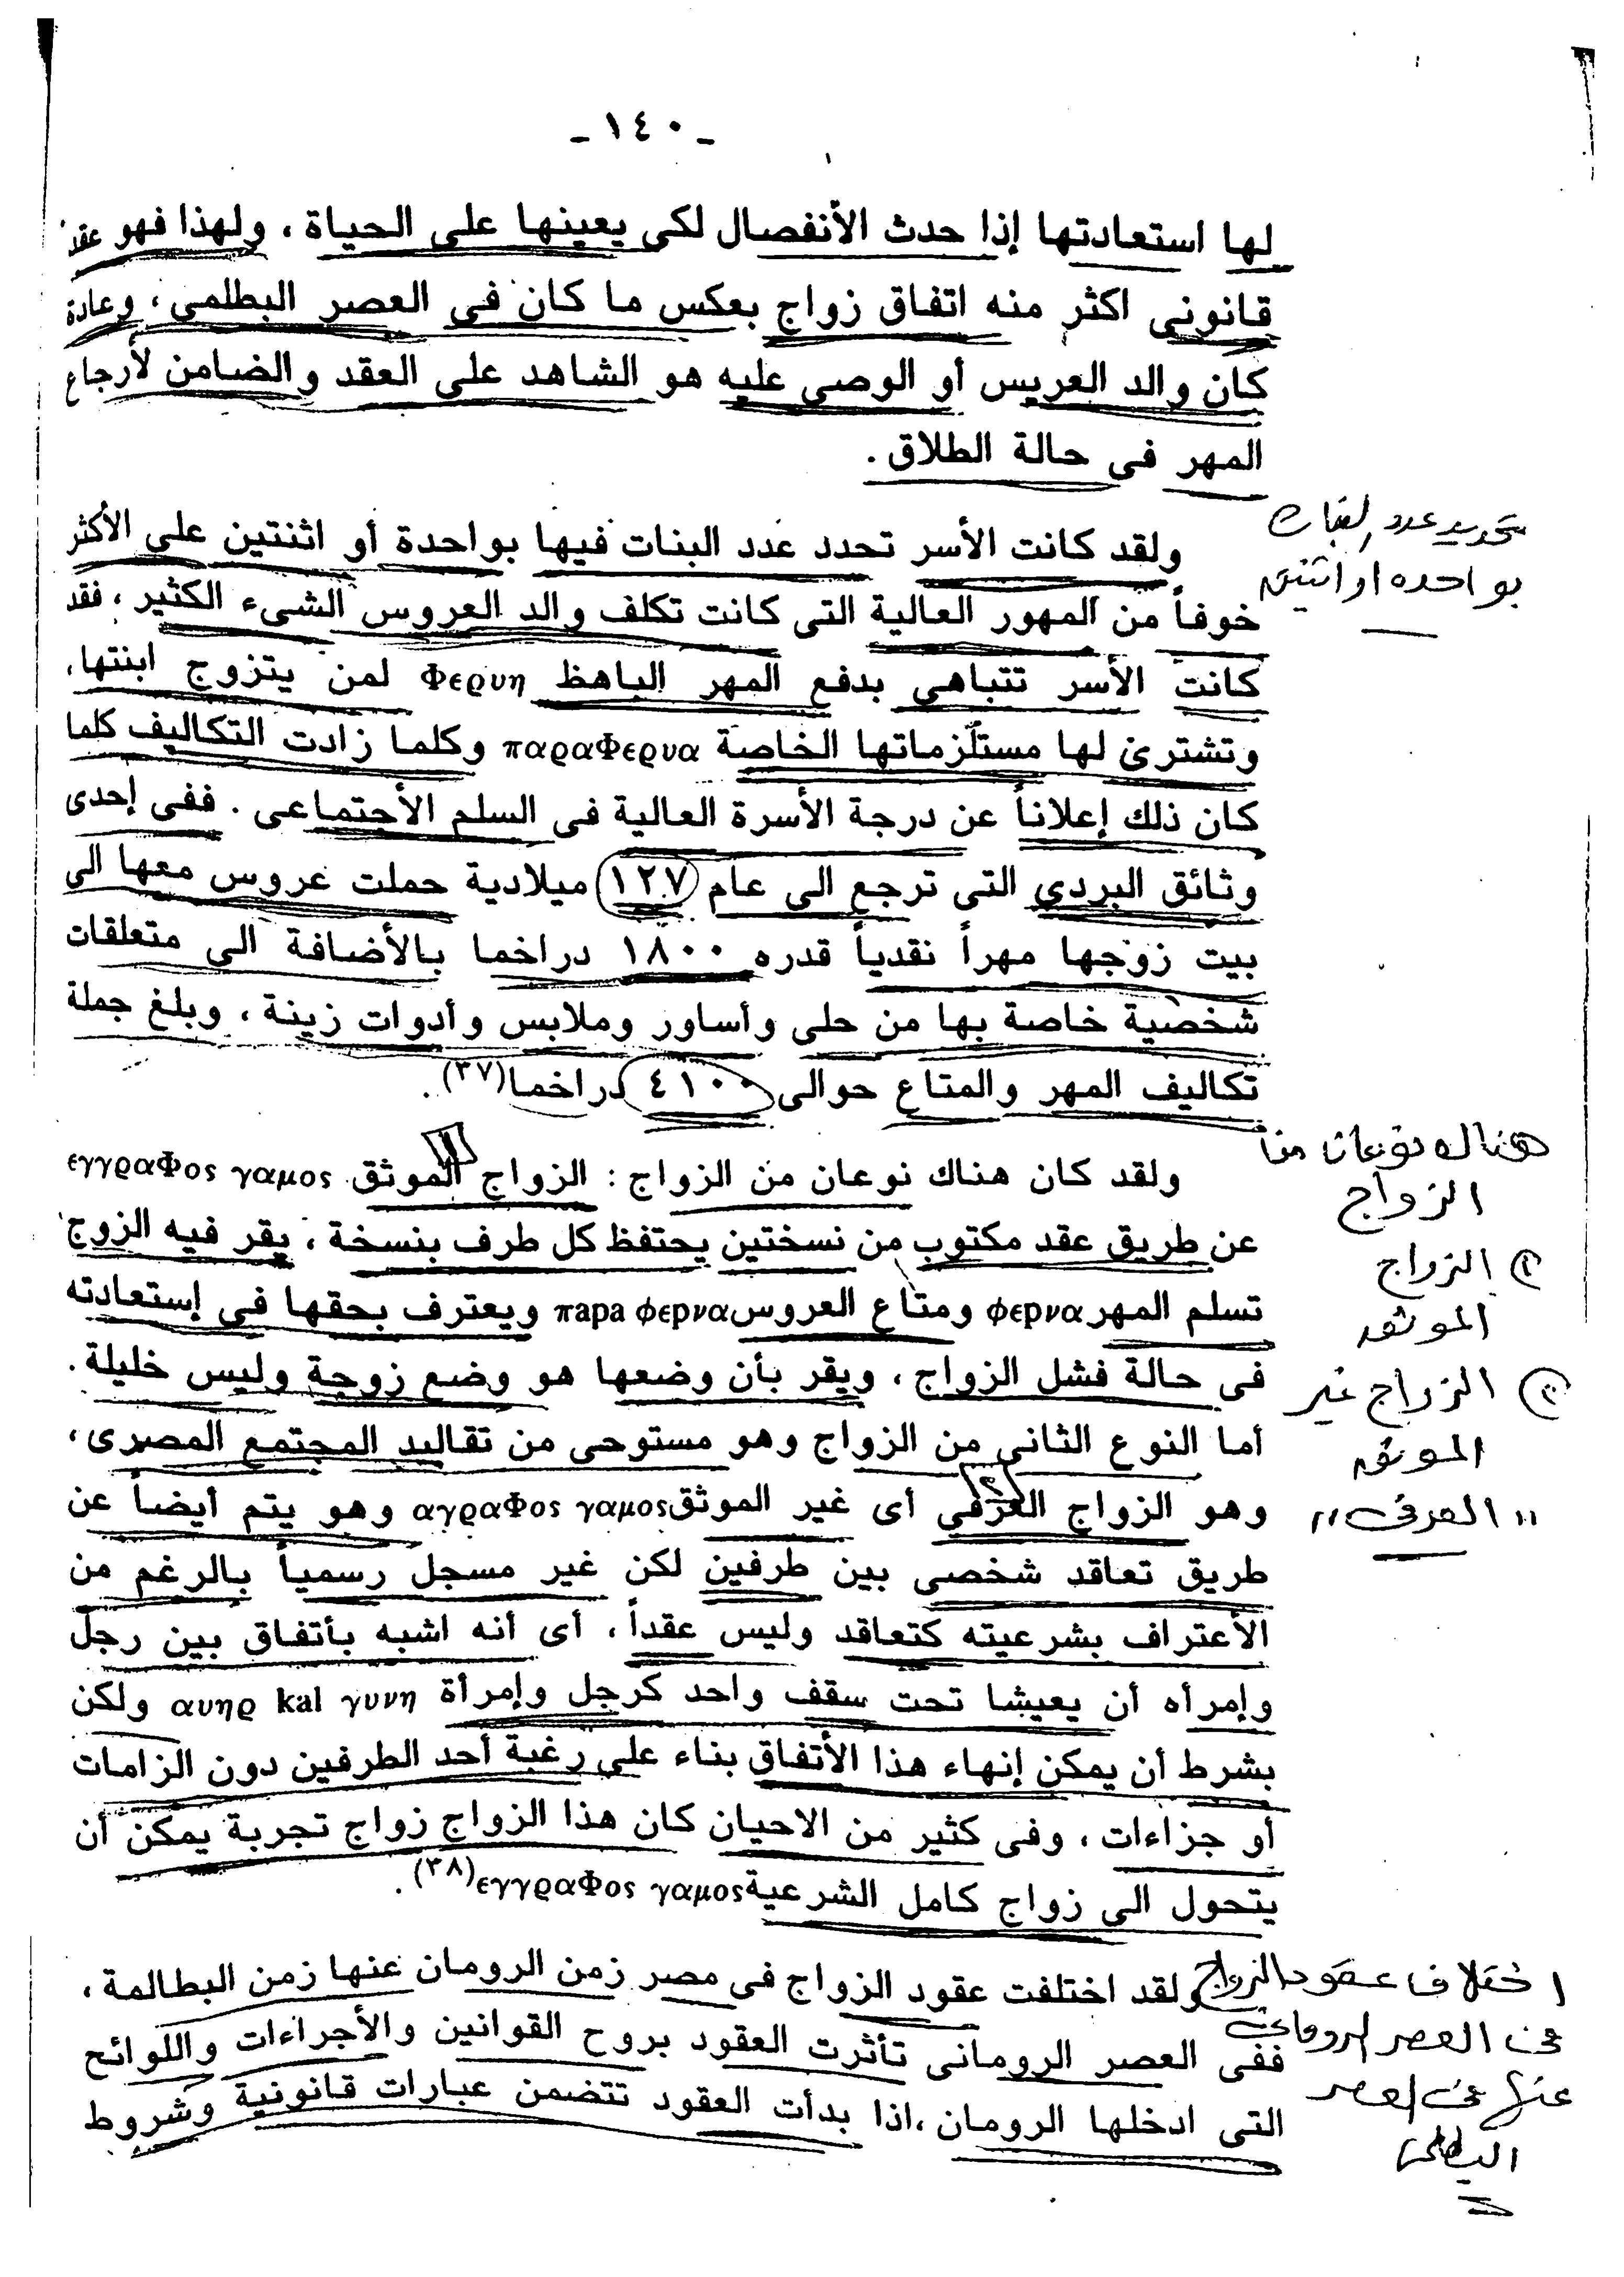 - ١٤٠ -
لها استعادتها إذا حدث الأنفصال لكى يعينها على الحياة ، ولهذا فهو عقد
قانونى اكثر منه اتفاق زواج بعكس ما كان فى العصر البطلمى ، وعادة
كان والد العريس أو الوصى عليه هو الشاهد على العقد والضامن لأرجاع
المهر فى حالة الطلاق .
ولقد كانت الأسر تحدد عدد البنات فيها بواحدة أو اثنتين على الأكثر
خوفاً من المهور العالية التى كانت تكلف والد العروس الشىء الكثير ، فقد
كانت الأسر تتباهى بدفع المهر الباهظ Φερυη لمن يتزوج ابنتها ،
وتشترى لها مستلزماتها الخاصة παραΦερυα وكلما زادت التكاليف كلما
كان ذلك إعلاناً عن درجة الأسرة العالية فى السلم الأجتماعى . ففى إحدى
وثائق البردي التى ترجع الى عام ١٢٧ ميلادية حملت عروس معها الى
بيت زوجها مهراً نقدياً قدره ١٨٠٠ دراخما بالأضافة الى متعلقات
شخصية خاصة بها من حلى وأساور وملابس وأدوات زينة ، وبلغ جملة
تكاليف المهر والمتاع حوالى ٤١٠٠ دراخما(٣٧) .
ولقد كان هناك نوعان من الزواج : الزواج الموثق εγγραΦος γαμος
عن طريق عقد مكتوب من نسختين يحتفظ كل طرف بنسخة ، يقر فيه الزوج
تسلم المهر φερνα ومتاع العروس παρα φερνα ويعترف بحقها فى إستعادته
فى حالة فشل الزواج ، ويقر بأن وضعها هو وضع زوجة وليس خليلة .
أما النوع الثانى من الزواج وهو مستوحى من تقاليد المجتمع المصرى ،
وهو الزواج العرفي أى غير الموثق αγραΦος γαμος وهو يتم أيضاً عن
طريق تعاقد شخصى بين طرفين لكن غير مسجل رسمياً بالرغم من
الأعتراف بشرعيته كتعاقد وليس عقداً ، أى أنه اشبه بأتفاق بين رجل
وإمرأه أن يعيشا تحت سقف واحد كرجل وإمرأة αυηρ kal γυυη ولكن
بشرط أن يمكن إنهاء هذا الأتفاق بناء على رغبة أحد الطرفين دون الزامات
أو جزاءات ، وفى كثير من الاحيان كان هذا الزواج زواج تجربة يمكن أن
يتحول الى زواج كامل الشرعية εγγραΦος γαμος(٣٨) .
ولقد اختلفت عقود الزواج فى مصر زمن الرومان عنها زمن البطالمة ،
ففى العصر الرومانى تأثرت العقود بروح القوانين والأجراءات واللوائح
التى ادخلها الرومان ،اذا بدأت العقود تتضمن عبارات قانونية وشروط
تحديد عدد البنات
بواحده او اثنين
هناك نوعان من
الزواج
١ الزواج
الموثق
٢ الزواج غير
الموثق
"العرفى"
اختلاف عقود الزواج
فى العصر الرومانى
عنها فى العصر
البطلمى